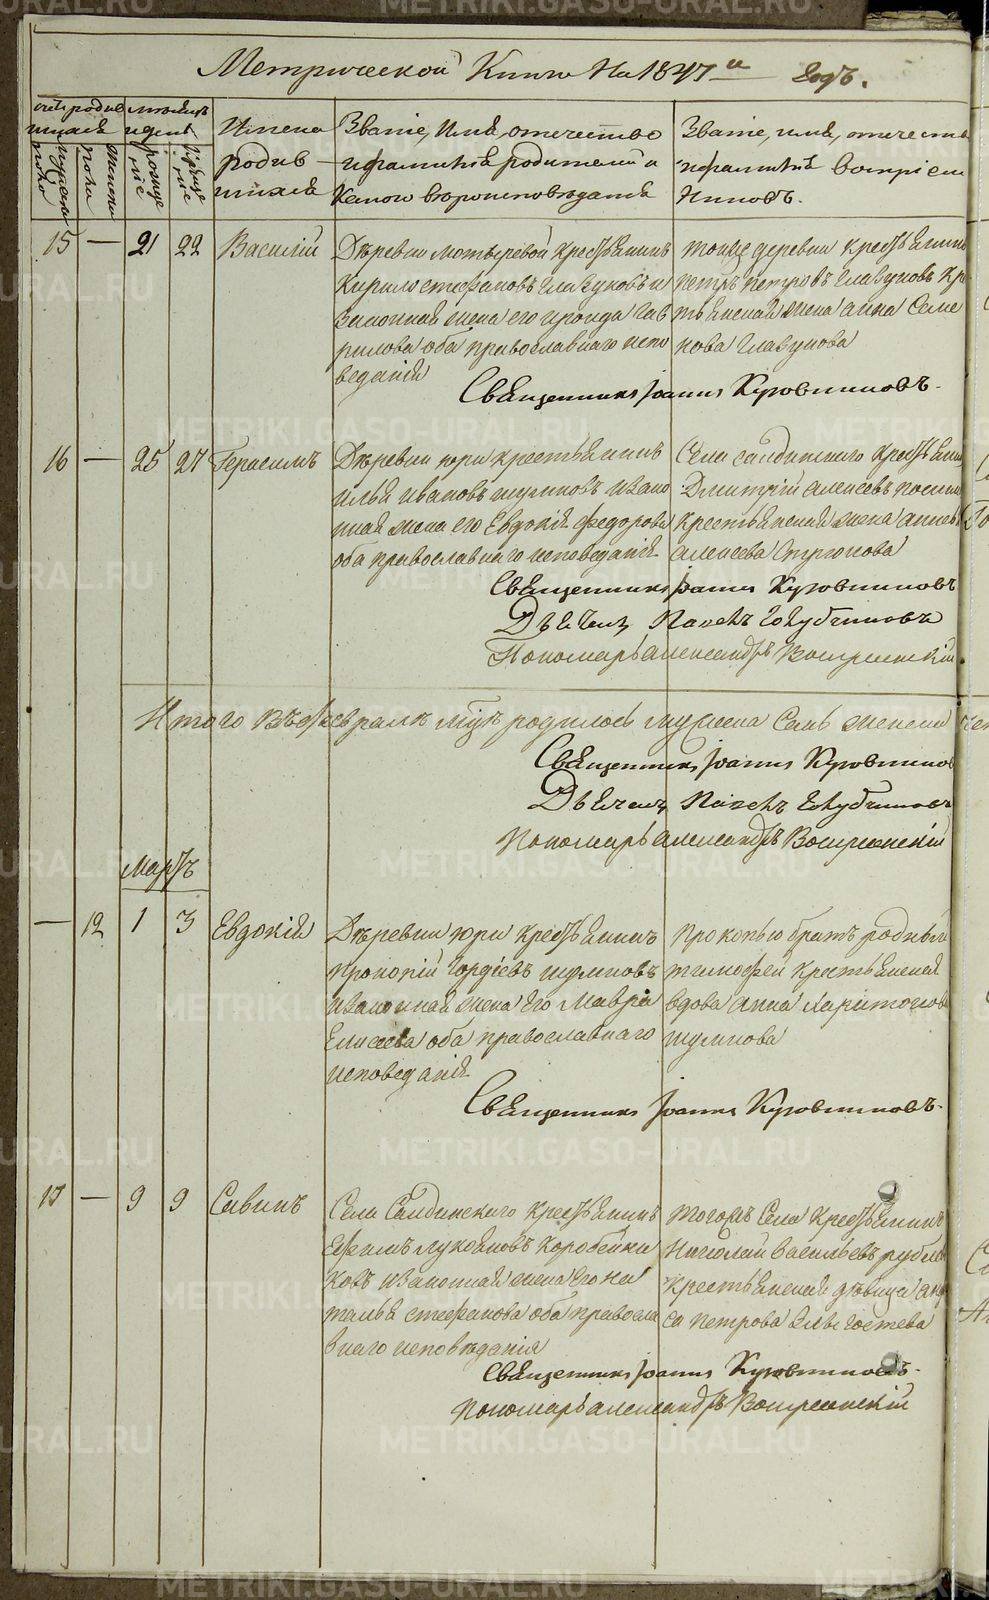 Метрической Книги На 1847 й Годъ.
Счетъ родив
шихся
Мужеска
пола
Женска
пола
Мѣсяцъ
и день
рожде
нiе
Креще
нiе
Имена
родив
шихся
Званiе, Имя, отечество
и фамилiя родителей и
Какого вѣроисповѣданiя
Званiе, имя, отечеств
и фамилiя воспрiем
Никовъ.
15 — 21 22 Василiй
Деревни мотыревой Крестьянинъ
Кирило стефановъ Глазуновъ и
Законная жена его Гав
рилова оба православнаго испо
веданiя
тойже деревни крестьянин
Петръ Петровъ Глазуновъ Кр
тьянская жена анна Семе
нова Глазунова
Священникъ Iоаннъ Куровшиковъ.
16 — 25 27 Герасимъ
Деревни юри крестьянинъ
илья ивановъ шумковъ изако
нная жена его Евдокiя федорова
оба православнаго исповеданiя
Села салдинскаго Крестьяни
Дмитрiй алексѣевъ
Крестьянская жена
алексѣева Стрюкова
Священникъ Iоаннъ Куровшиковъ
Дьячекъ Павелъ Голубчиковъ
Пономарь александръ Воскресенскiй.
Итого Въ феврале мцѣ родилось мужеска Семь женска
Священникъ Iоаннъ Куровшиков
Дьячекъ Павелъ Голубчиковъ
Пономарь александръ Воскресенскiй
Мартъ
— 12 1 3 Евдокiя
Деревни юри Крестьянинъ
прокопiй Гордѣевъ шумковъ
изаконная жена его Мавра
Елисеева оба православнаго
исповеданiя
Прокопью братъ родный
тимофей Крестьянская
вдова анна Харитонов
шумкова
Священникъ Iоаннъ Куровшиковъ.
17 — 9 9 Савинъ
Села Салдинскаго Крестьянинъ
Ефимъ лукояновъ Коробейни
ковъ изаконная жена его На
талья стефанова оба правосла
внаго исповѣданiя
тогожъ Села Крестьянинъ
Николай васильевъ рубле
Крестьянская дѣвица
са петрова
Священникъ Iоаннъ Куровшиковъ.
Пономарь александръ Воскресенскiй
METRIKI.GASO-URAL.RU